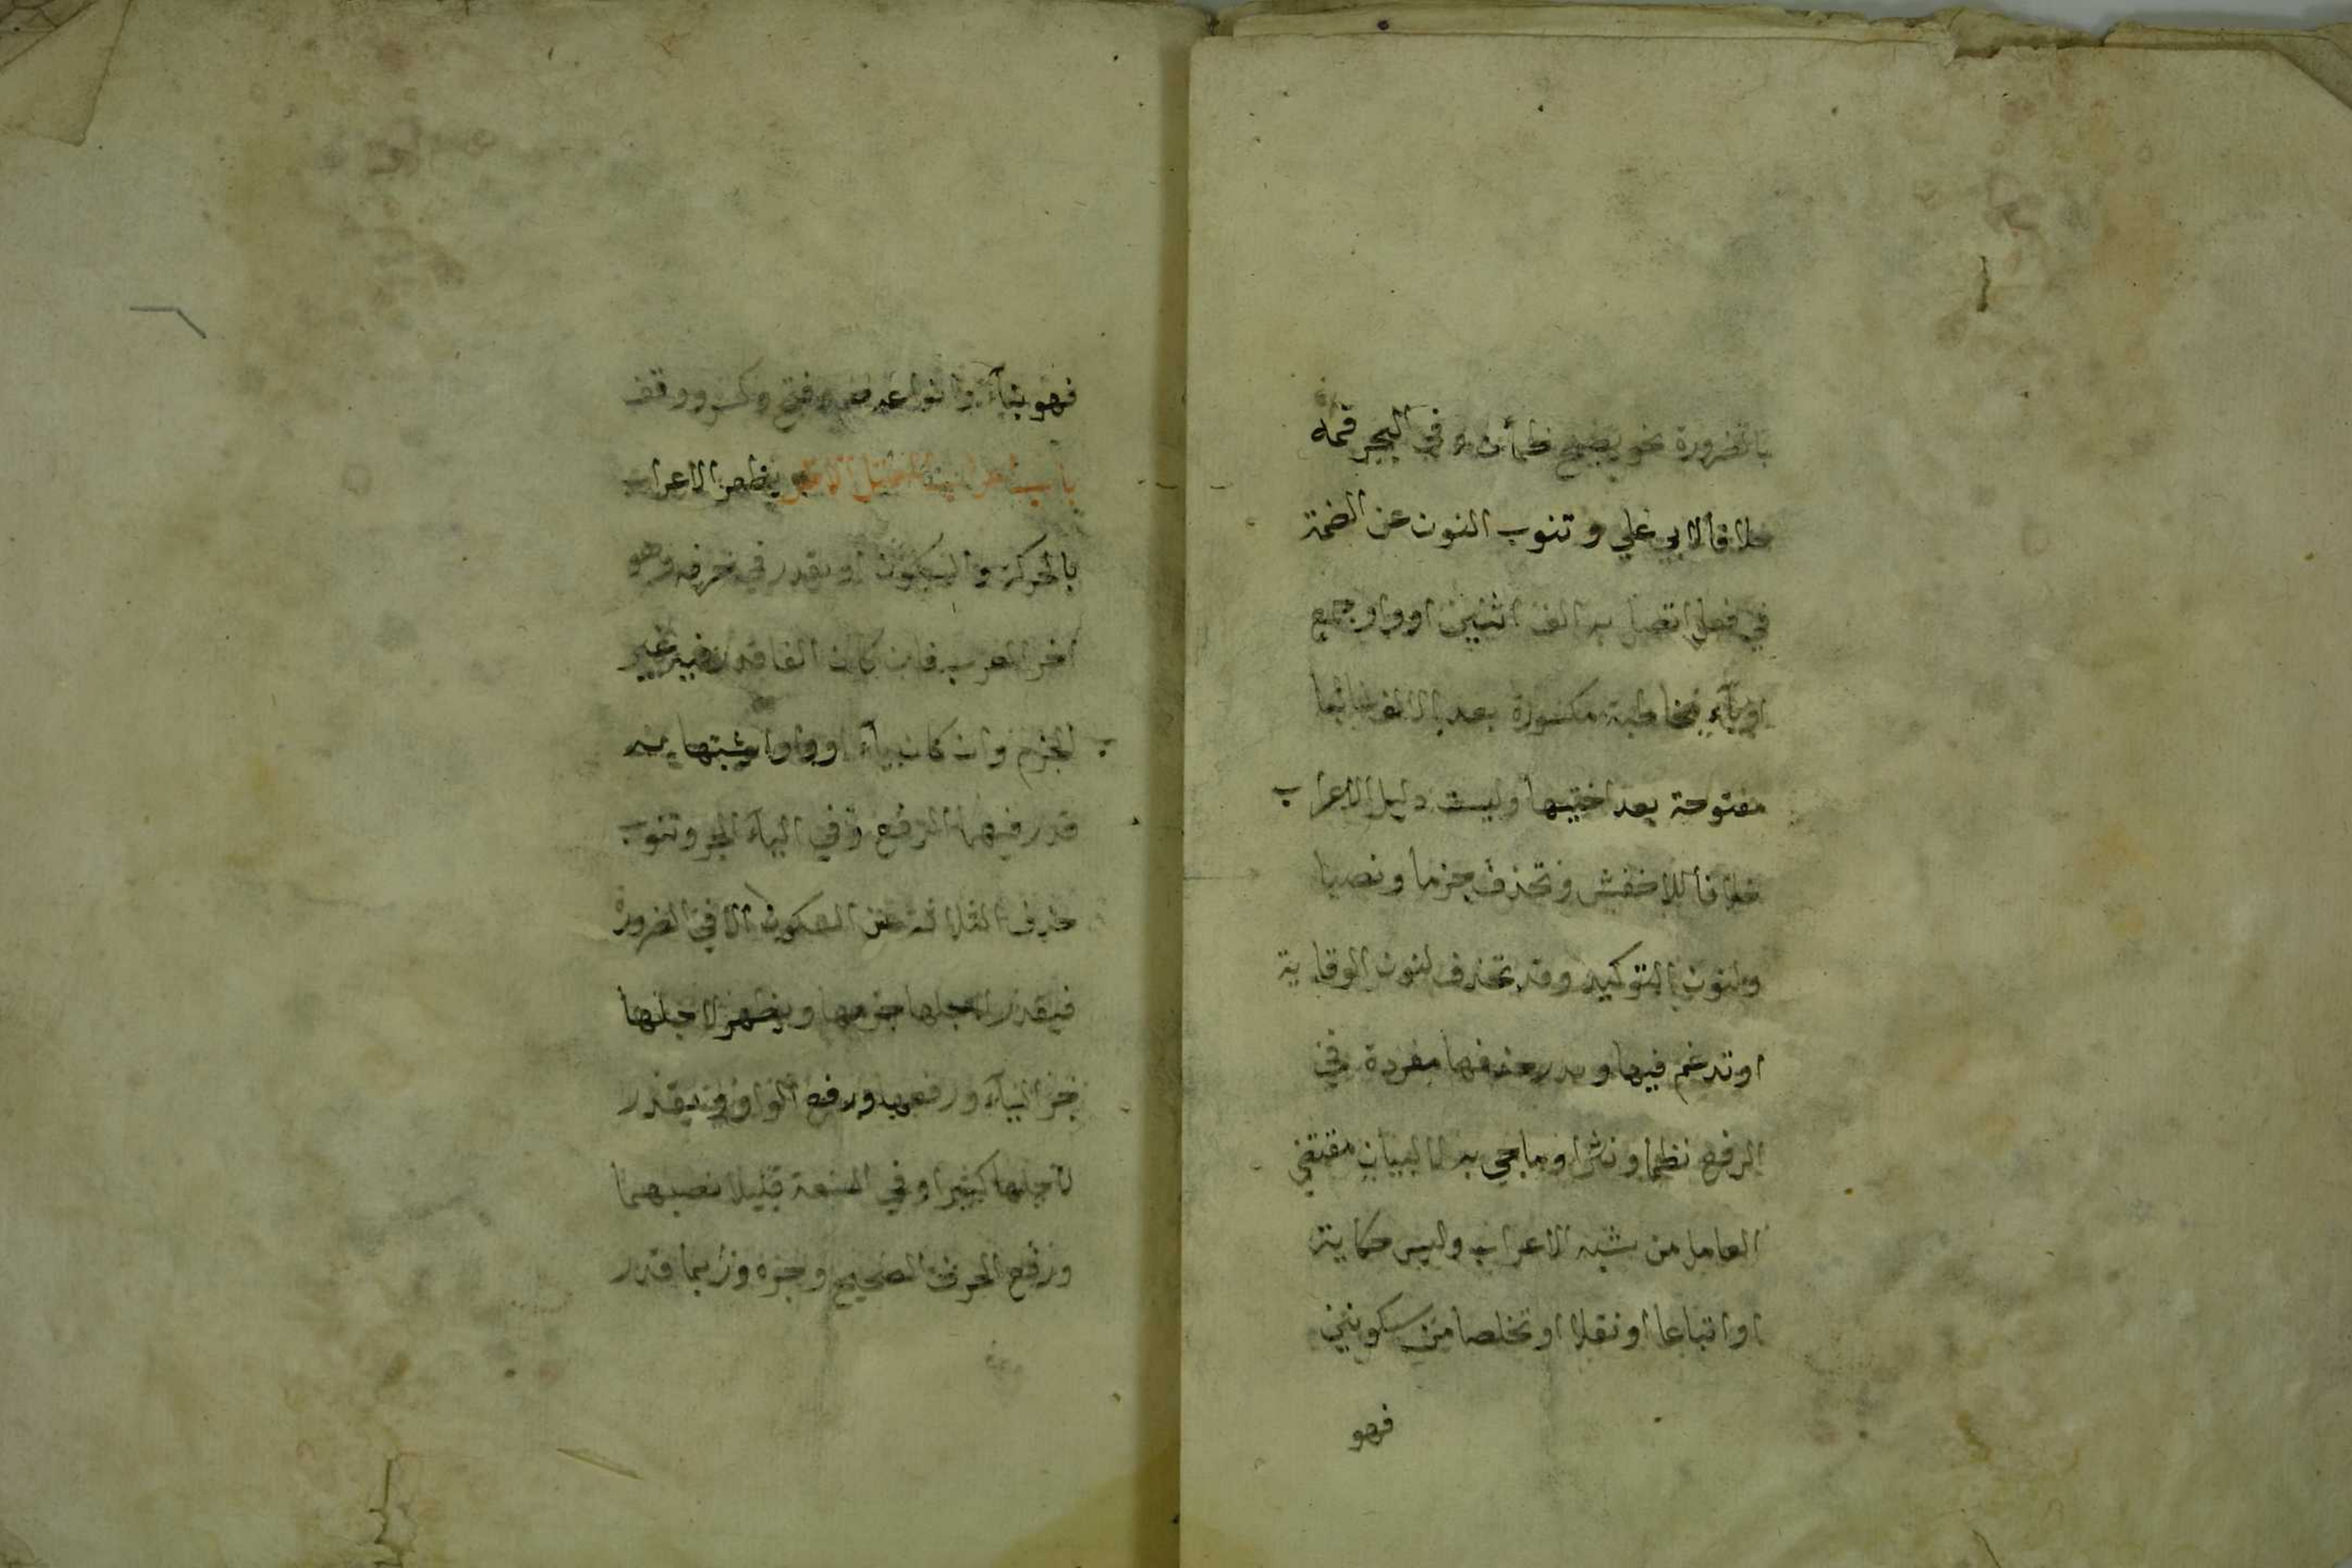 بالضرورة نحو يصبح ظمأن وفي البحر فمه
خلافا لابي علي وتنوب النون عن الضمة
في فعل اتصل به الف اثنين او واو جمع
او ياء مخاطبة مكسورة بعد الالف غالبا
مفتوحة بعد اختيها وليست دليل الاعراب
خلافا للاخفش وتحذف جزما ونصبا
ولنون التوكيد وقد تحذف لنون الوقاية
او تدغم فيها وندر حذفها مفردة في
الرفع نظما ونثرا وما جي به لا لبيان مقتضي
العامل من شبه الاعراب وليس حكاية
او اتباعا او نقلا او تخلصا من سكونين
فهو
فهو بناء وانواعه ضم وفتح وكسر ووقف
باب اعراب المعتل الاخر يظهر الاعراب
بالحركة والسكون او يقدر في حرفه وهو
اخر المعرب فان كان الفا قدر فيه غير
الجزم وان كان ياء او واوا يشبهانه
قدر فيهما الرفع وفي الياء الجر وتنوب
حذف الثلاثة عن السكون الا في الضرورة
فيقدر لاجلها جزمها ويظهر لاجلها
جر الياء ورفعها ورفع الواو وقد يقدر
لاجلها كثيرا وفي السعة قليلا نصبهما
ورفع الحرف الصحيح وجره وربما قدر